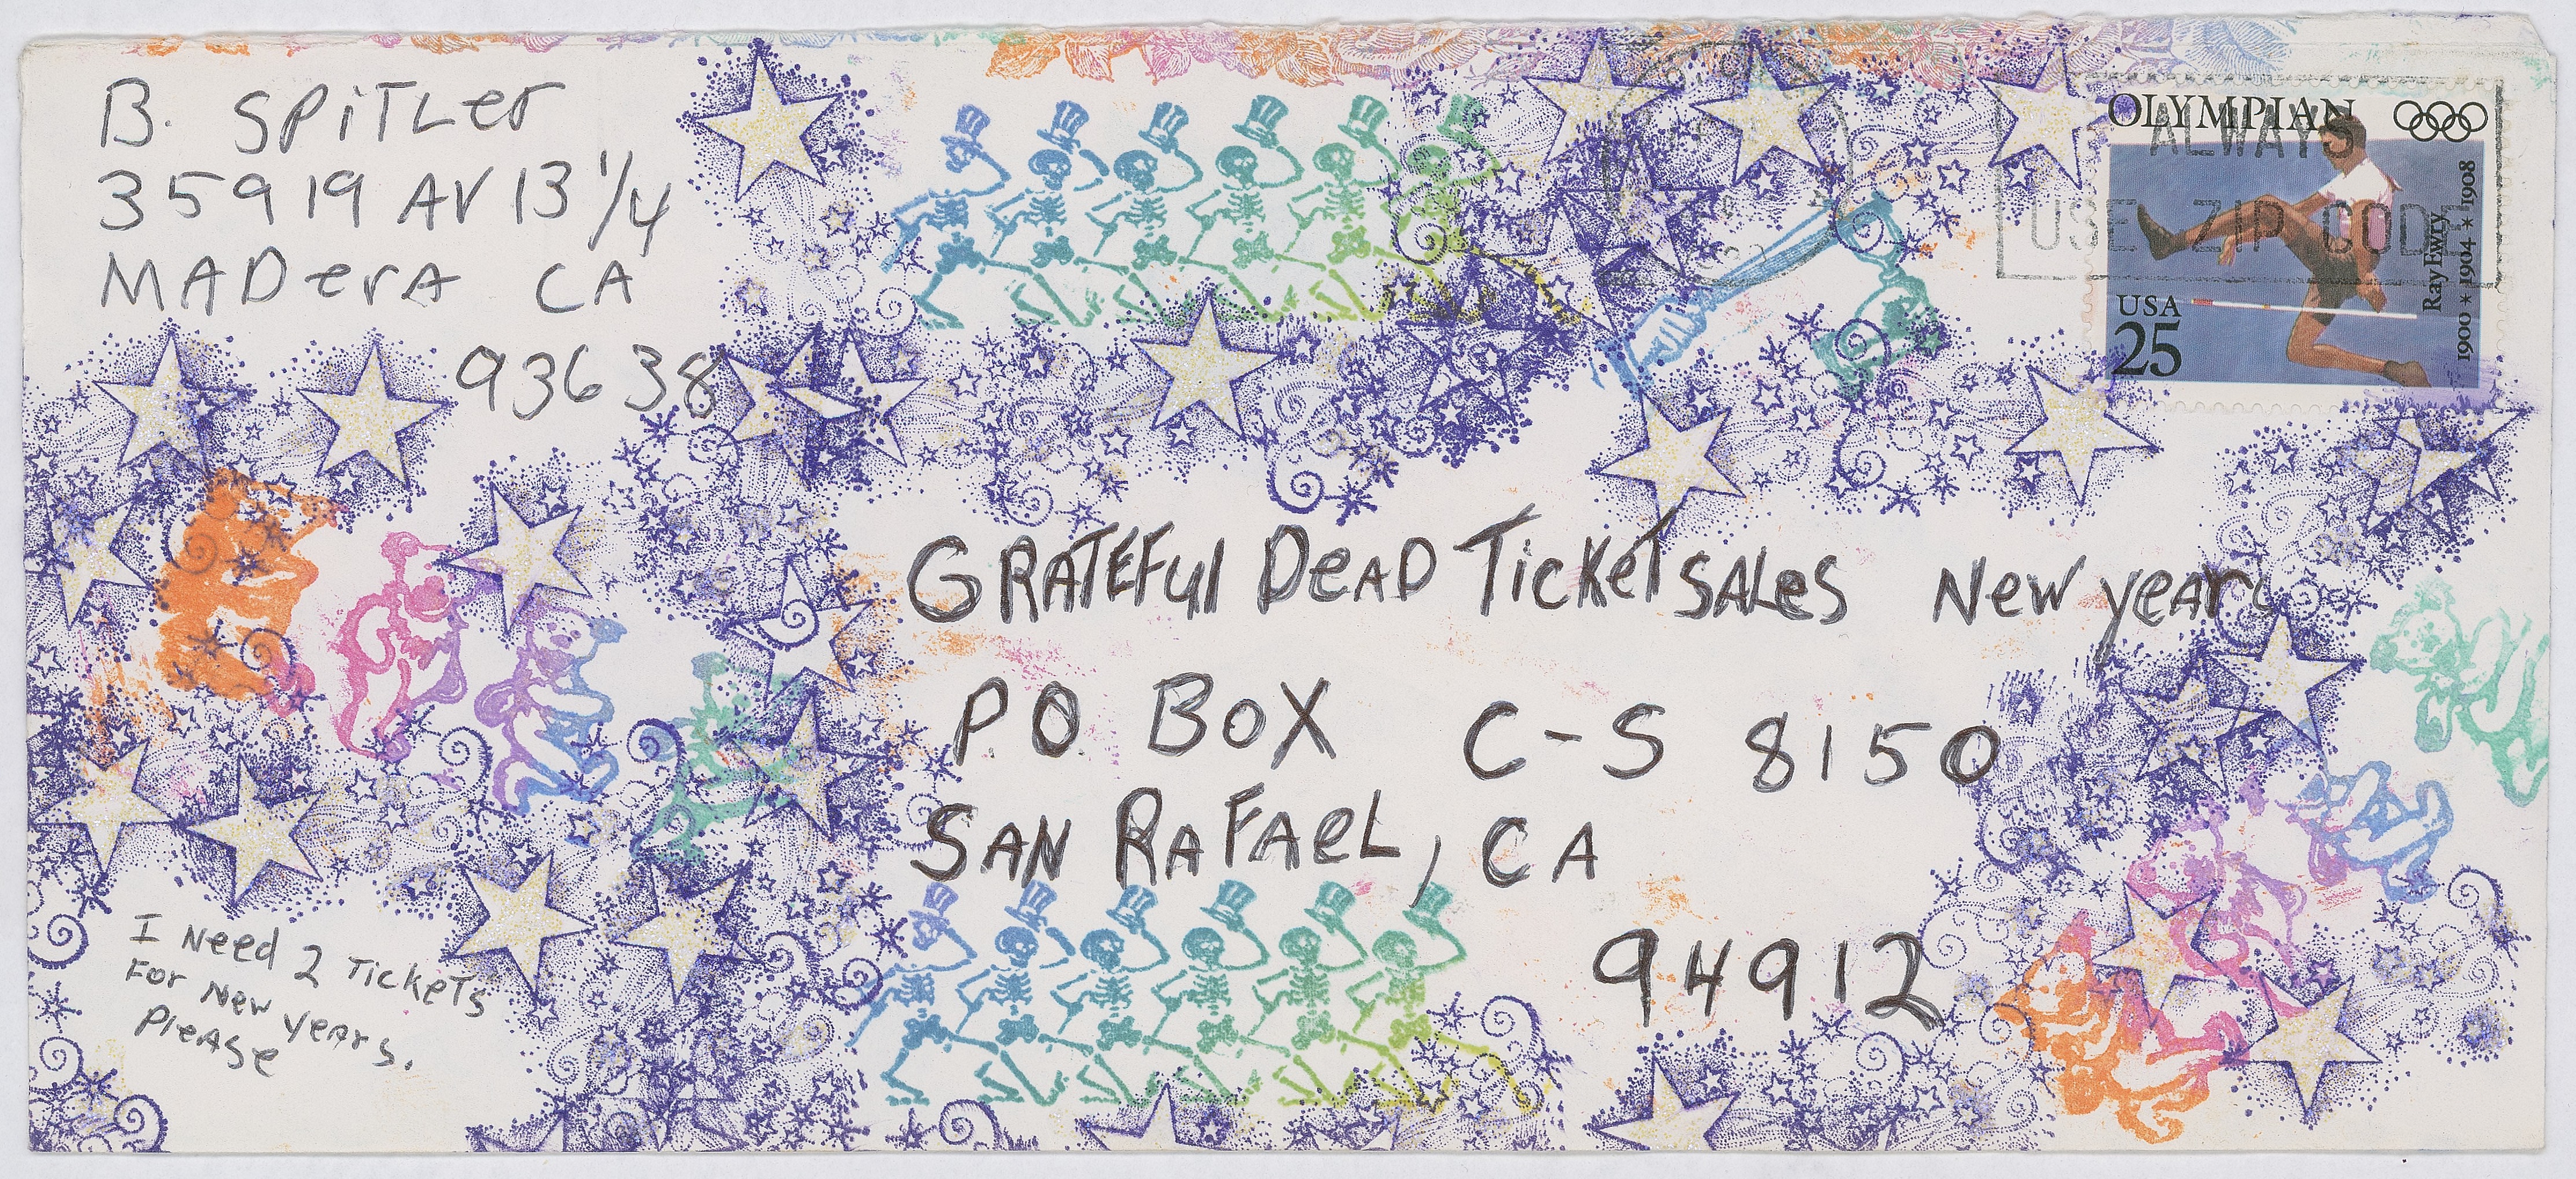 B. SPiTLer
35919 AV 13 1/4
MADerA CA
93638
OLYMPIAN
ALWAYS
USE ZIP CODE
Ray Ewry
1900 * 1904 * 1908
USA
25
GRATEFul DeAD TickeT SALes New years
P.O. BOX C-S 8150
SAN RAFAeL, CA
94912
I Need 2 TickeTs
For New Years.
PleAse